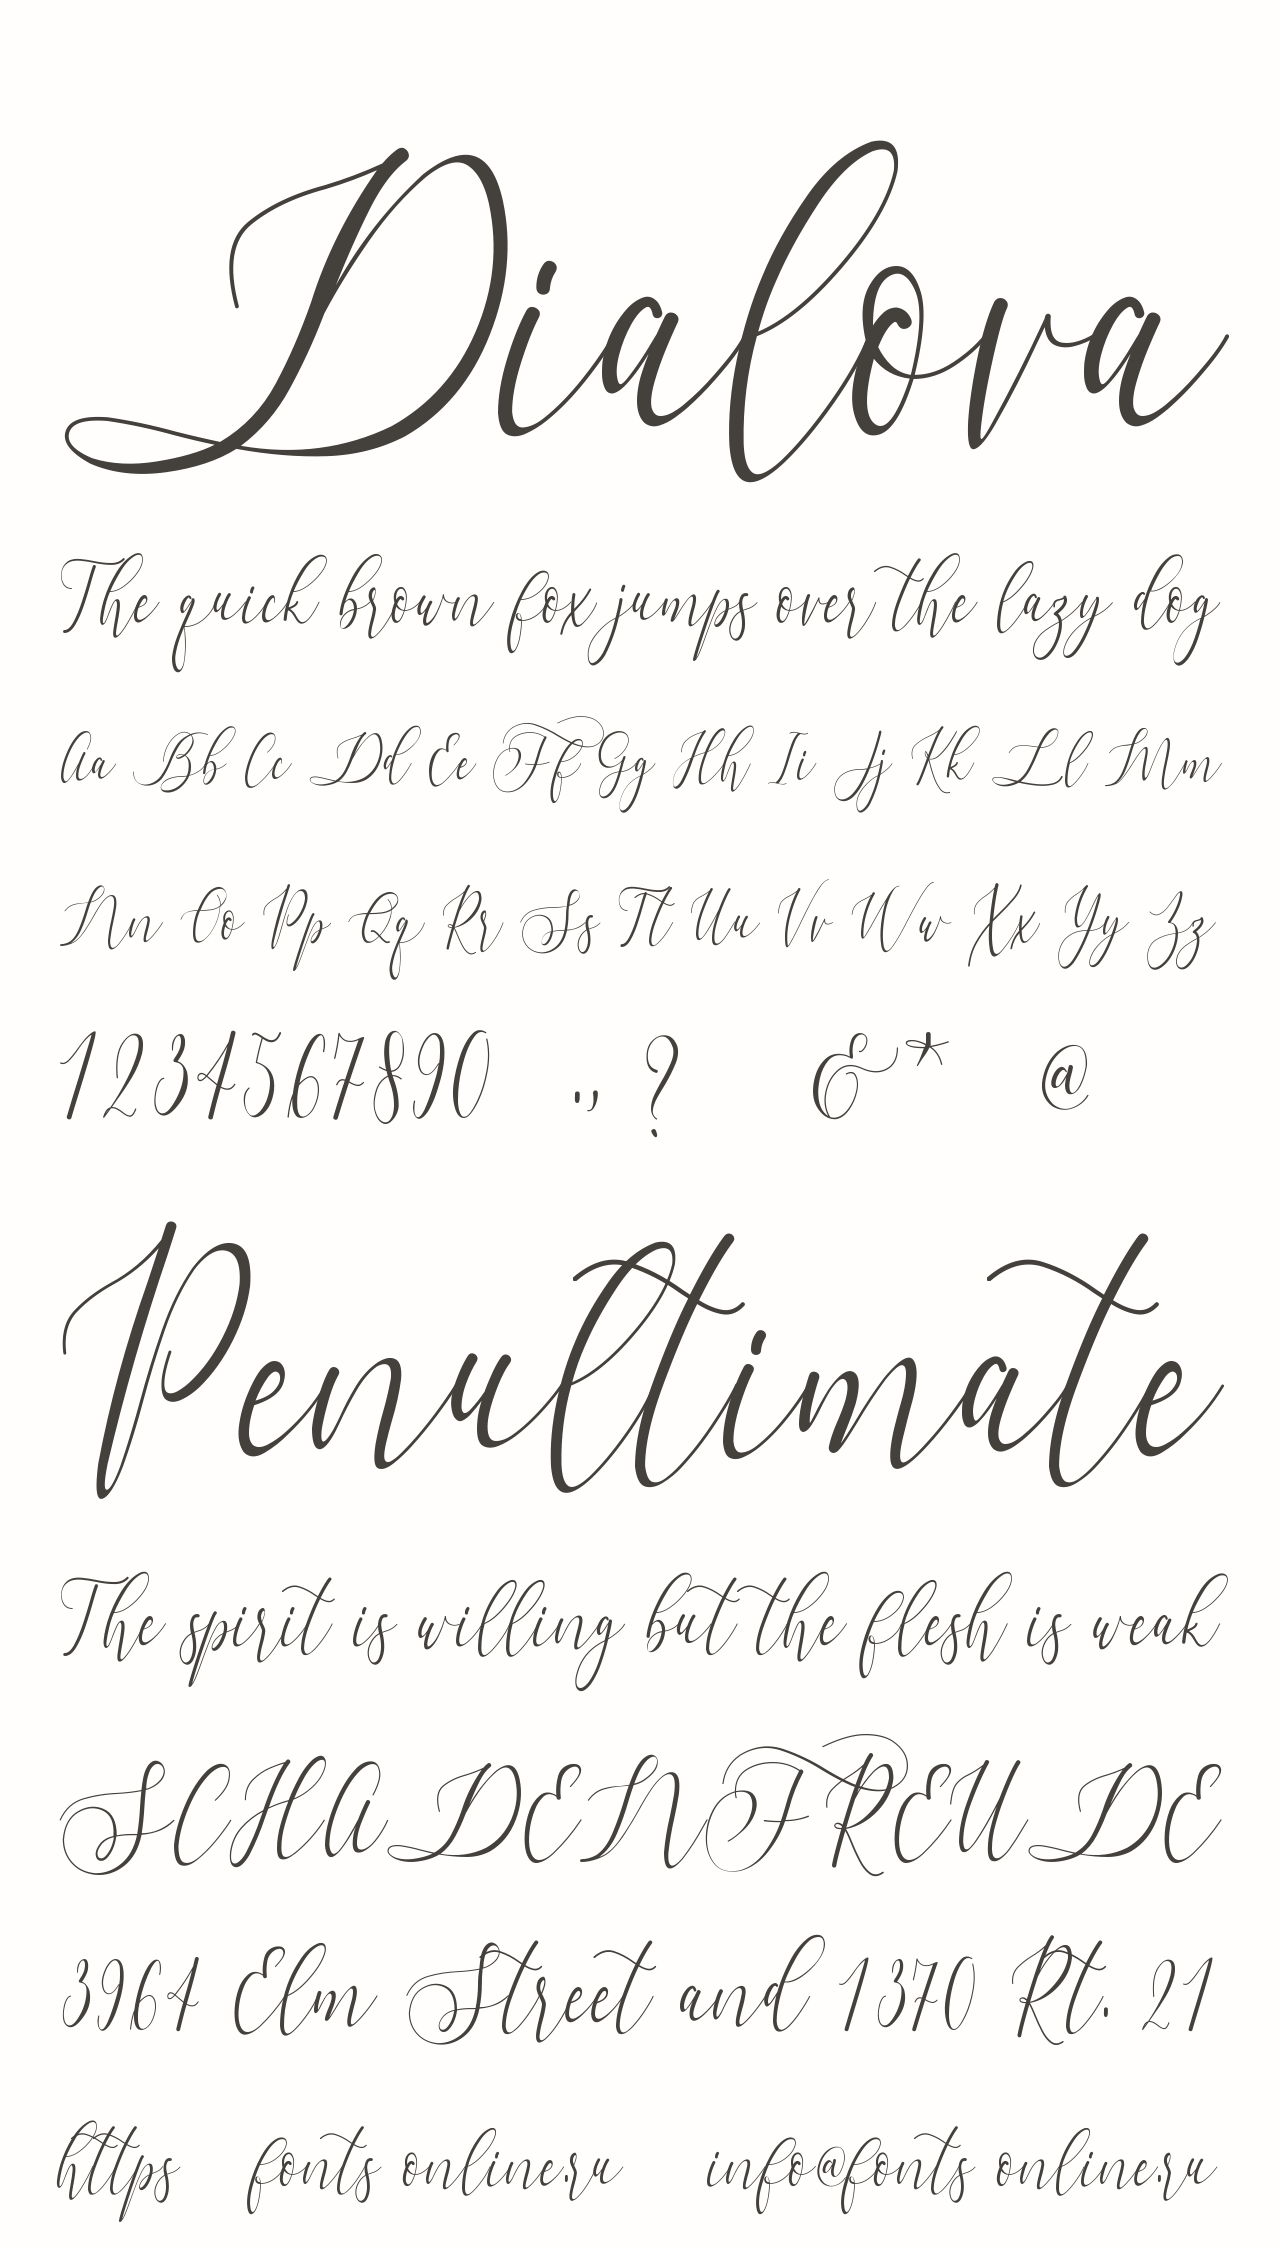 Dialova
The quick brown fox jumps over the lazy dog
Aa Bb Cc Dd Ee Ff Gg Hh Ii Jj Kk Ll Mm
Nn Oo Pp Qq Rr Ss Tt Uu Vv Ww Xx Yy Zz
1234567890 ., ? &* @
Penultimate
The spirit is willing but the flesh is weak
SCHADENFREUDE
3964 Elm Street and 1370 Rt. 21
https fonts online.ru info@fonts online.ru